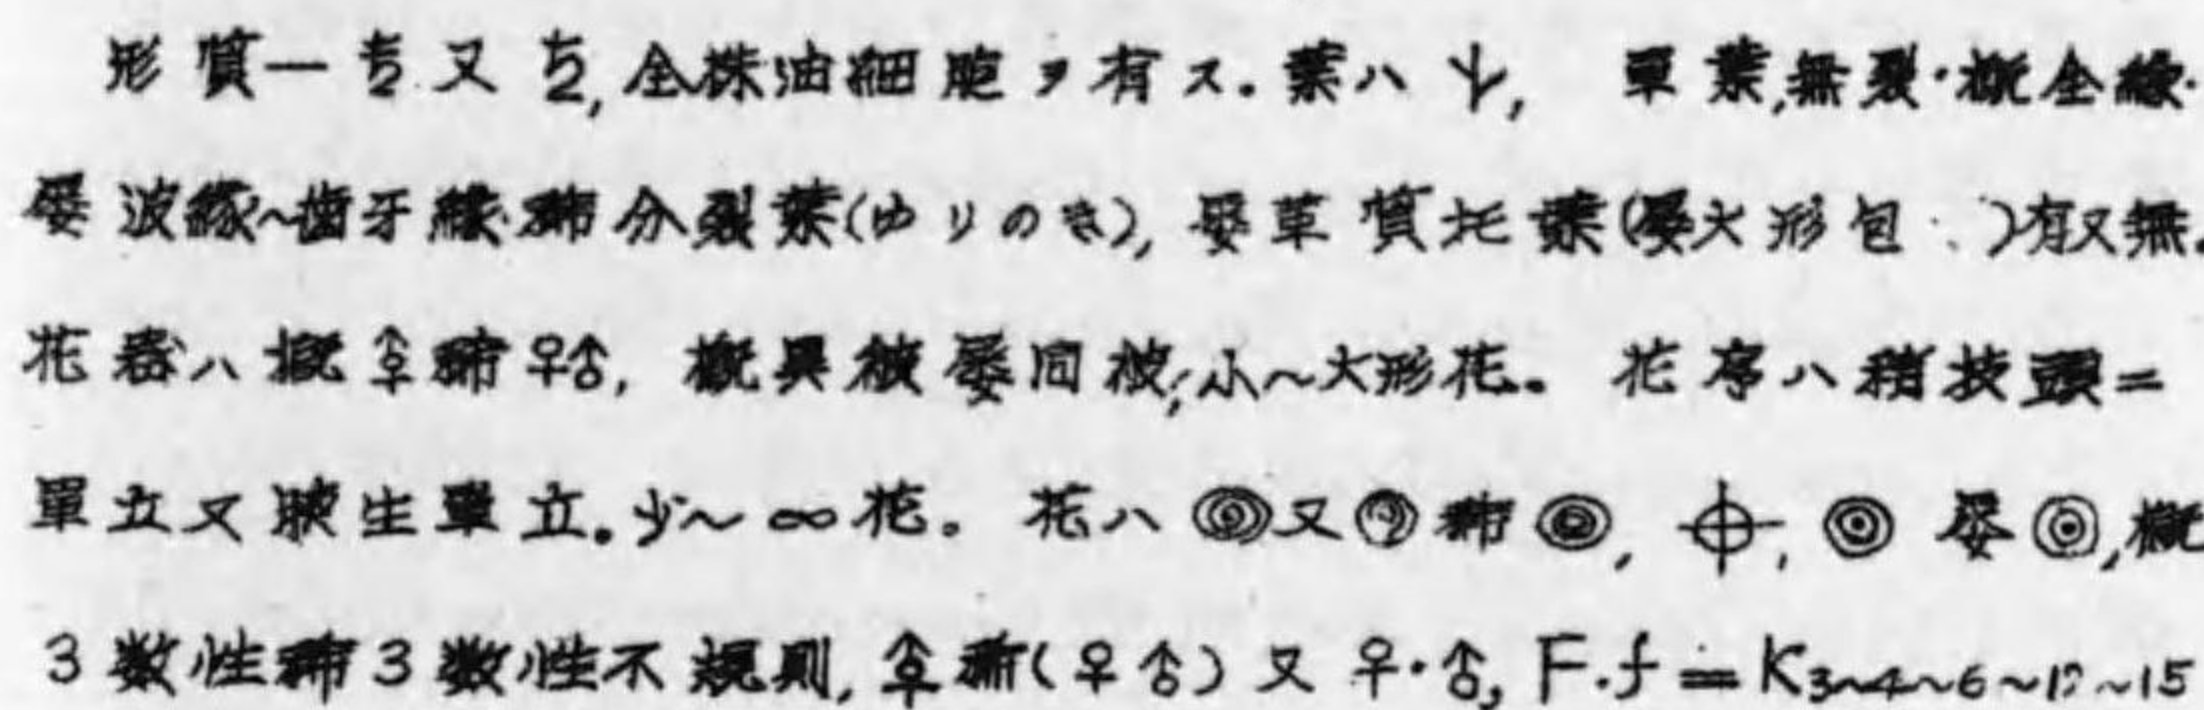 形質一 又 , 全株油細胞ヲ有ス. 葉ハ , 單葉,無裂·概全緣·
屡波緣~歯牙緣·稀分裂葉(ゆりのき), 屡草質托葉(屡大形包 )有又無.
花器ハ概 稀♀♂, 概異被屡同被;小~大形花。 花序ハ 枝頭ニ
單立又腋生單立.少~∞花。 花ハ 又 稀 , , 屡 , 概
3数性稀3数性不規則, 稀(♀♂) 又 ♀·♂, F.f = K3~4~6~12~15